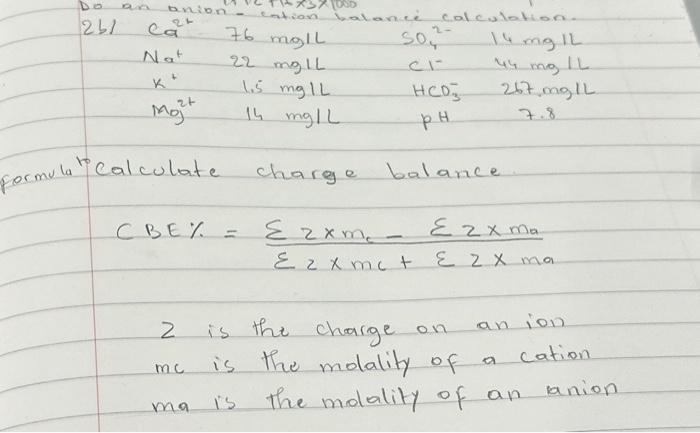 Do an anion - cation balance calculation.
2b/ Ca2+ 76 mg/L SO4 2- 14 mg/L
Na+ 22 mg/L Cl- 44 mg/L
K+ 1.5 mg/L HCO3- 267 mg/L
Mg2+ 14 mg/L pH 7.8
Formula to calculate charge balance
CBE% = Σ z x mc - Σ z x ma
Σ z x mc + Σ z x ma
z is the charge on an ion
mc is the molality of a cation
ma is the molality of an anion